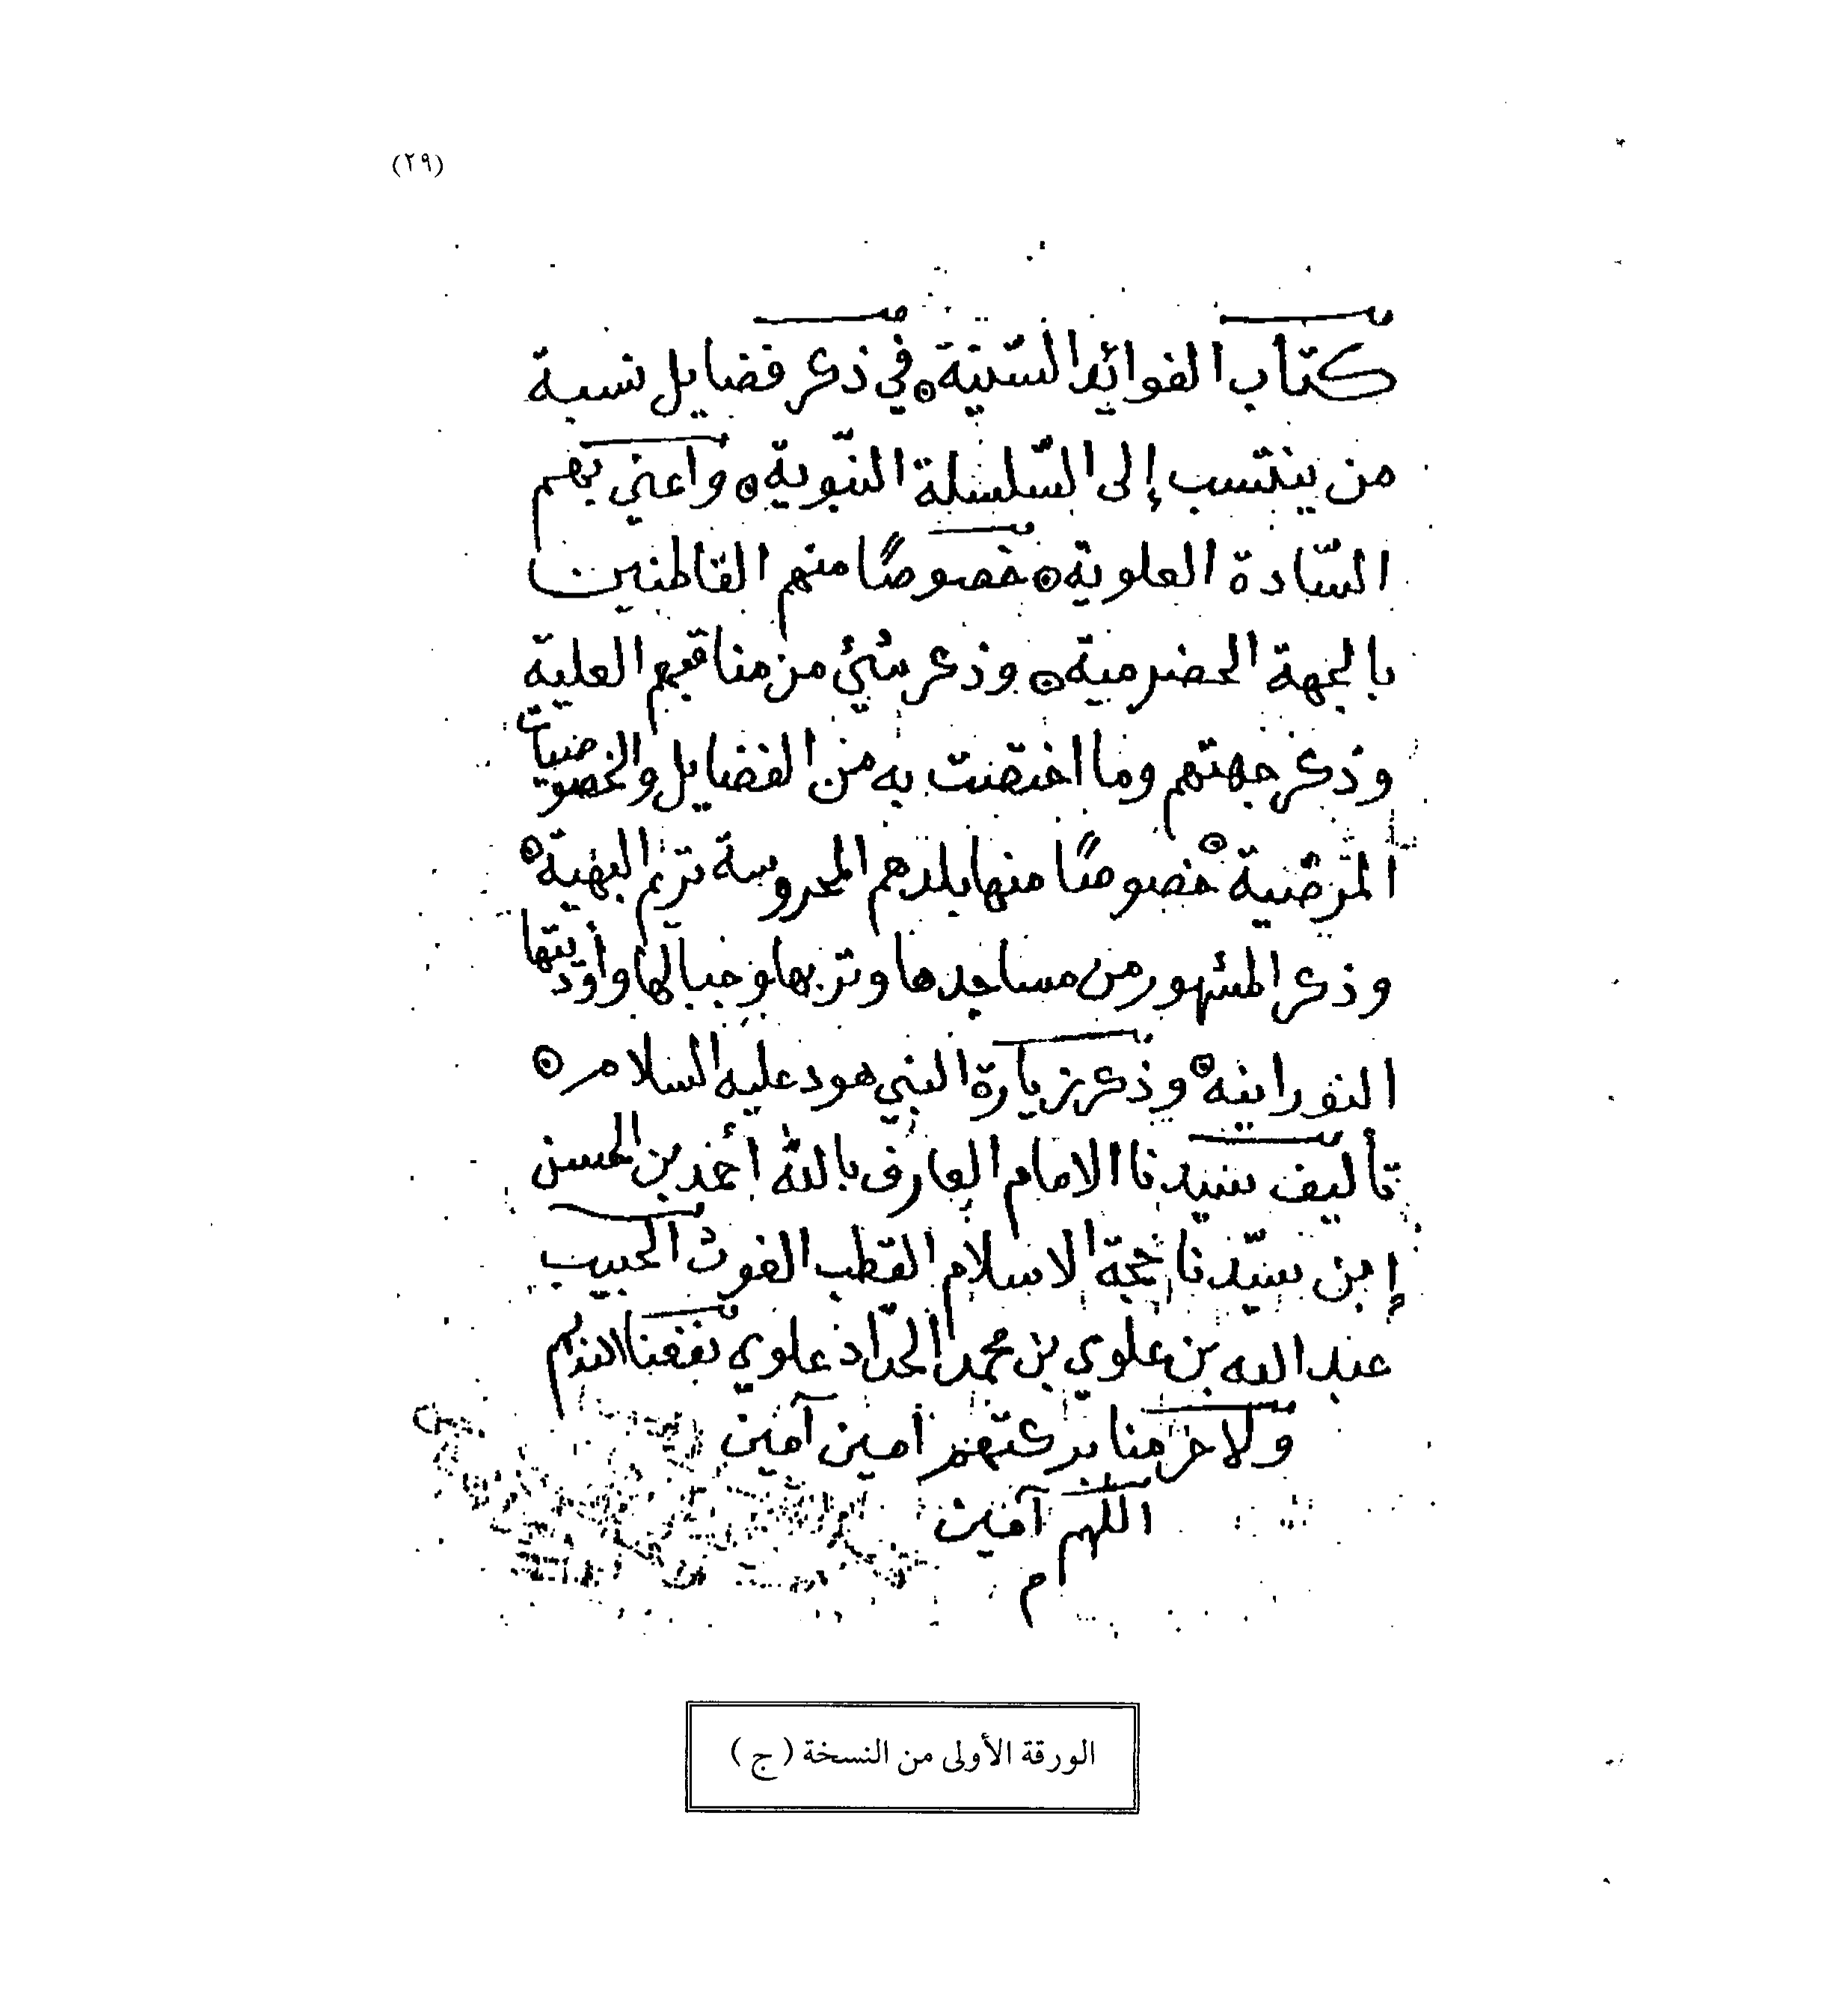 (٢٩)
كتاب الفوائد السّنيّة في ذكر فضايل نسبة
من ينتسب إلى السّلسلة النّبوية واعني بهم
السّادة العلوية خصوصًا منهم القاطنين
بالجهة الحضرمية وذكر شئ من مناقبهم العلية
وذكر جهتهم وما اختصت به من الفضايل والخصوصيات
المرضية خصوصًا منها بلدهم المحروسة تريم البهية
وذكر المشهور من مساجدها وتربها وجبالها وأوديتها
النورانيه وذكر زيارة النبي هود عليه السلام
تأليف سيدنا الامام العارف بالله أحمد بن الحسن
إبن سيّدنا حجة الاسلام القطب الغوث الحبيب
عبد الله بن علوي بن محمد الحدّاد علوي نفعنا الله بهم
ولا حرمنا بركتهم امين آمين
اللهم آمين
م
الورقة الأولى من النسخة (ج)